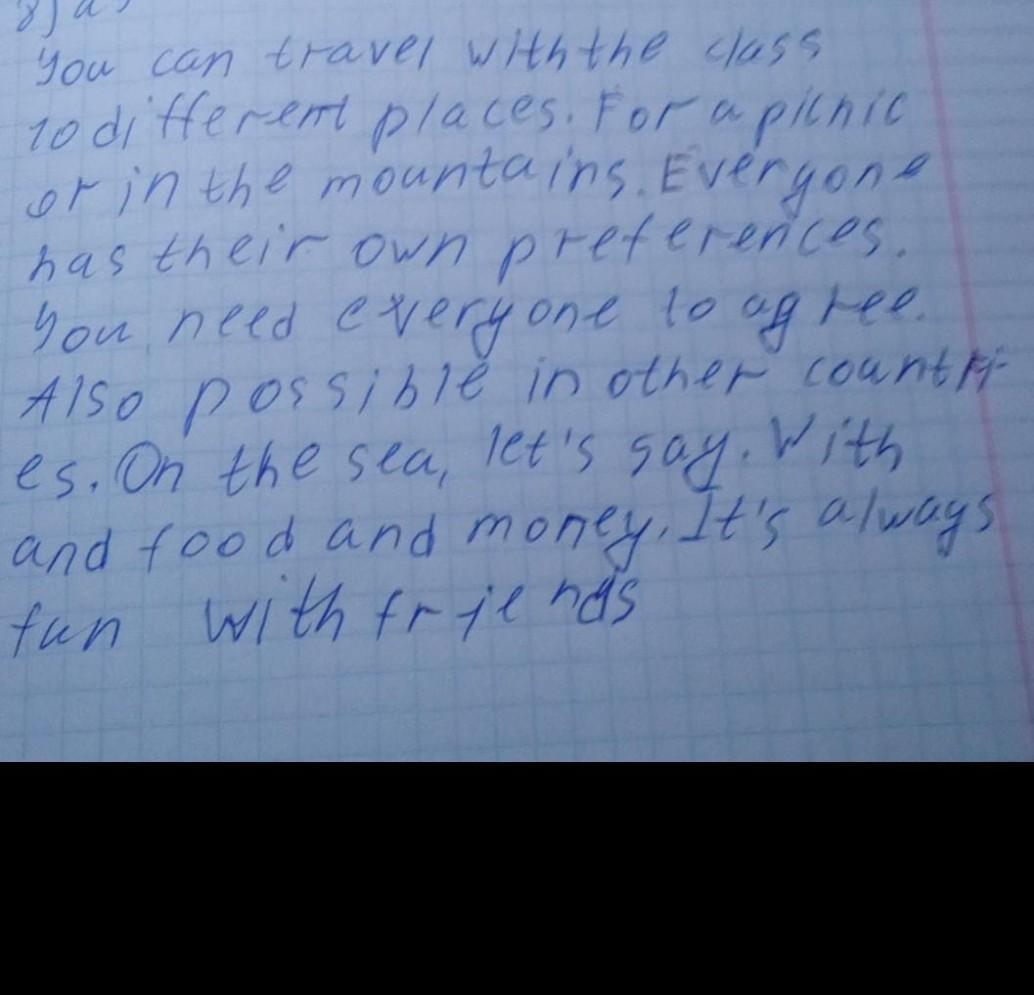 8) a)
You can travel with the class
to different places. For a picnic
or in the mountains. Everyone
has their own preferences.
You need everyone to agree.
Also possible in other countri-
es. On the sea, let's say. With
and food and money. It's always
fun with friends